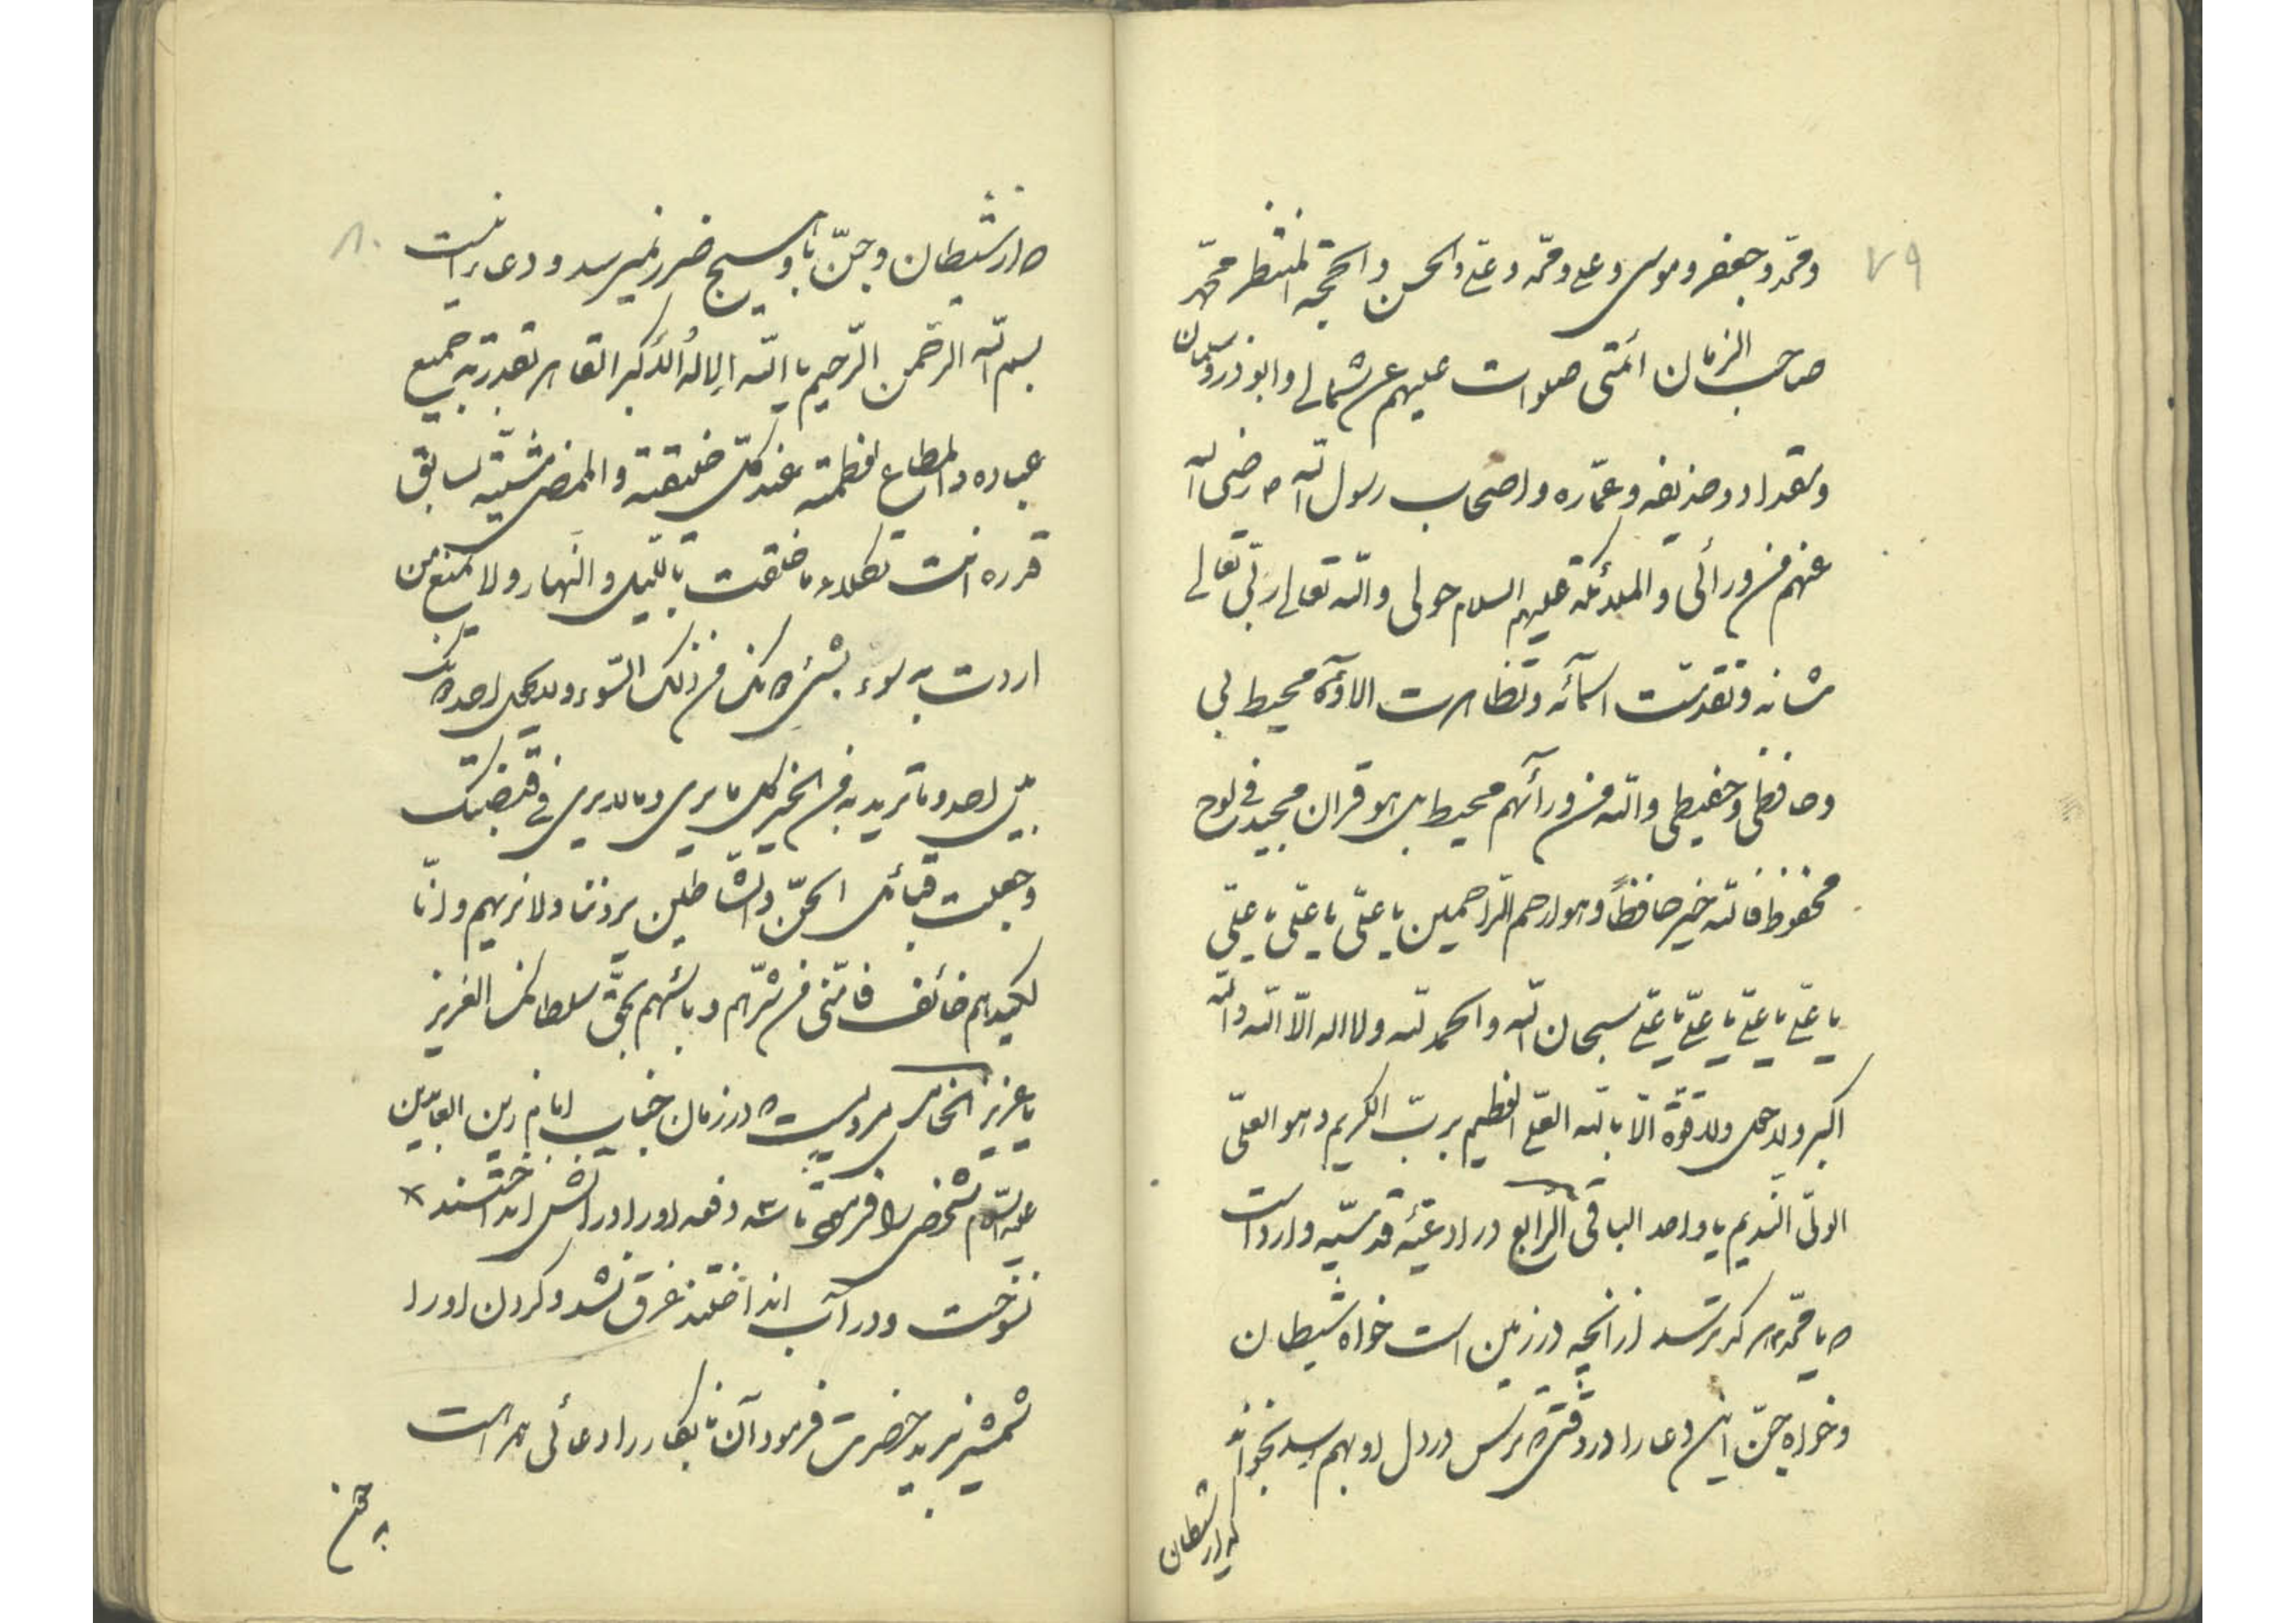 ۷۹
ومحمّد وجعفر وموسی وعلی ومحمّد وعلی والحسن والحجّة المنتظر محمّد
صاحب الزمان ائمّتی صلوات علیهم عن شمالی وابوذر وسلمان
ومقداد وحذیفه وعمّاره واصحاب رسول الله ص رضی الله
عنهم من ورائی والملائکة علیهم السلام حولی والله تعالی ربّی تعالی
شانه وتقدّست اسمآئه وتظاهرت الاوآه محیط بی
وحافظی وحفیظی والله من ورآئهم محیط بل هو قران مجید فی لوح
محفوظ فالله خیر حافظاً وهو ارحم الرّاحمین یا علیّ یا علیّ یا علیّ
یا علیّ یا علیّ یا علیّ یا علیّ سبحان الله والحمد لله ولا اله الّا الله والله
اکبر ولا حول ولا قوّة الّا بالله العلی العظیم بربّ الکریم وهو العلیّ
الولیّ النّدیم یا واحد الباقی الرّابع در ادعیّه قدسیّه وارد است
که یا محمّد هر که بترسد از انچه در زمین است خواه شیطان
وخواه جنّ این دعا را در وقتیکه ترس در دل او بهم رسد بخواند
که از شیطان
۸۰
که از شیطان وجنّ باو هیچ ضرر نمیرسد و دعا اینست
بسم الله الرّحمن الرّحیم یا الله الاله الاکبر القاهر بقدرته جمیع
عباده والمطاع لعظمته عند کلّ خلیقته والممضی مشیّته لسابق
قدره انت تکلاء ما خلقت باللّیل والنّهار ولا یمتنع من
اردت به سوء بشیء دونک من ذلک السّوء ولا یحول احد دونک
بین احد وما ترید به من الخیر کل ما یری وما لا یری فی قبضتک
وجعلت قبائل الجنّ والشّیاطین یروننا ولا نریهم وانّا
لکیدهم خائف فامّنّی من شرّهم وباسهم بحقّ سلطانک العزیز
یا عزیز الخامس مرویست که در زمان جناب امام زین العابدین
علیه السّلام شخصی را فرمود تا سه دفعه او را در اتش انداختند
نسوخت ودر آب انداختند غرق نشد وگردن او را
شمشیر نبرید حضرت فرمود آن نابکار را دعائی همراهست